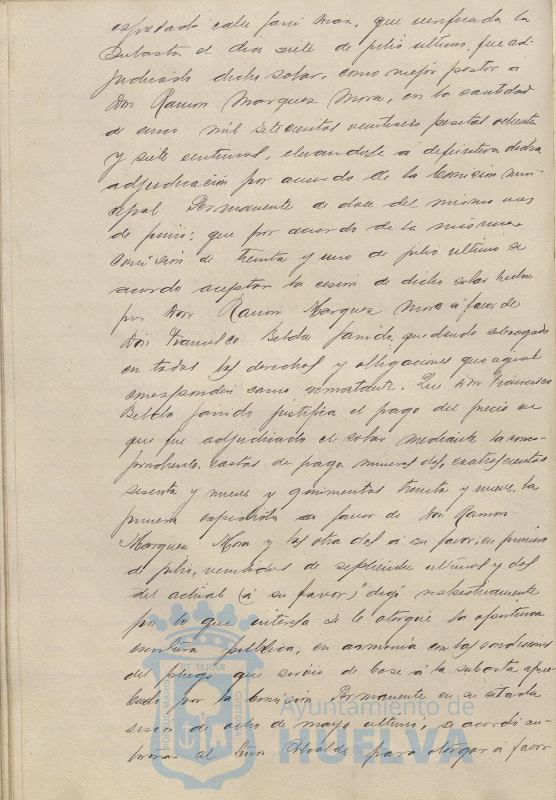 expresada calle José Nogales, que verificada la
subasta el dia siete de julio ultimo, fue ad-
judicado dicho solar, como mejor postor a
Don Ramon Marquez Mora, en la cantidad
de cinco mil setecientas veintiseis pesetas ochenta
y siete centimos, elevandose a definitiva dicha
adjudicación por acuerdo de la Comision mu-
nicipal Permanente de doce del mismo mes
de junio; que por acuerdo de la misma
Comisión de treinta y uno de julio ultimo se
acordo aceptar la cesión de dicho solar hecha
por Don Ramon Marquez Mora a favor de
Don Francisco Belda Garrido, quedando subrogado
en todos los derechos y obligaciones que a aquel
correspondia como rematante. Que Don Francisco
Belda Garrido justifica el pago del precio en
que fue adjudicado el solar mediante la com-
prondente cartas de pago, numeros dos, cuatrocientos
sesenta y nueve y quinientos treinta y nueve, la
primera expedida a favor de Don Ramon
Marquez Mora y las otra dos a su favor, en primero
de julio, veintidos de septiembre ultimos y dos
del actual (a su favor) digo respectivamente
por lo que interesa se le otorgue la oportuna
escritura publica, en armonia con las condiciones
del pliego que sirvió de base á la subasta apro-
bado por la Comision Permanente en su citada
sesion de ocho de mayo ultimo, se acordó au-
torizar al Señor Alcalde para otorgar a favor
Ayuntamiento de
HUELVA